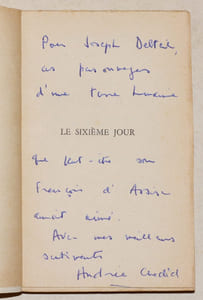 Pour Joseph Delteil,
ces personnages
d'une terre humaine
LE SIXIÈME JOUR
que peut-être son
François d'Assise
aurait aimé.
Avec mes meilleurs
sentiments
Andrée Chedid